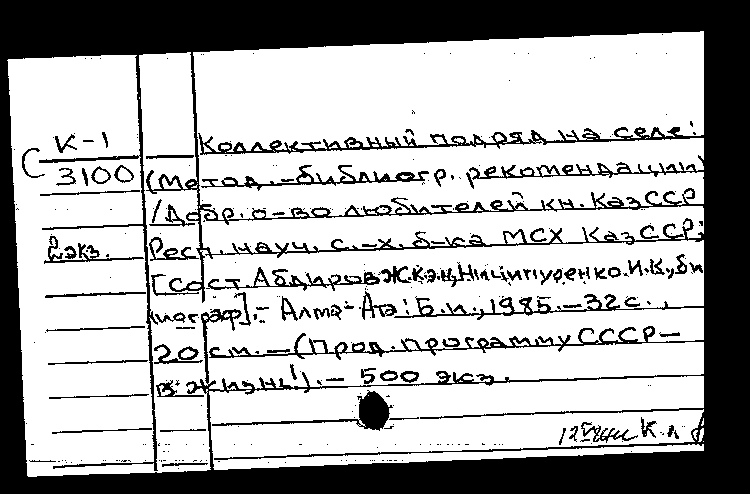 К-1
3100
2 экз.
Коллективный подряд на селе:
(Метод.-библиогр. рекомендации)
/Добр. о-во любителей кн. КазССР
Респ. науч. с.-х. б-ка МСХ КазССР;
[Сост. Абдиров Ж.К. Ничипуренко И.К., би
лиограф].- Алма-Ата: Б.и., 1985.-32с.,
20 см.-(Прод. программу СССР-
в жизнь!).- 500 экз.
К л